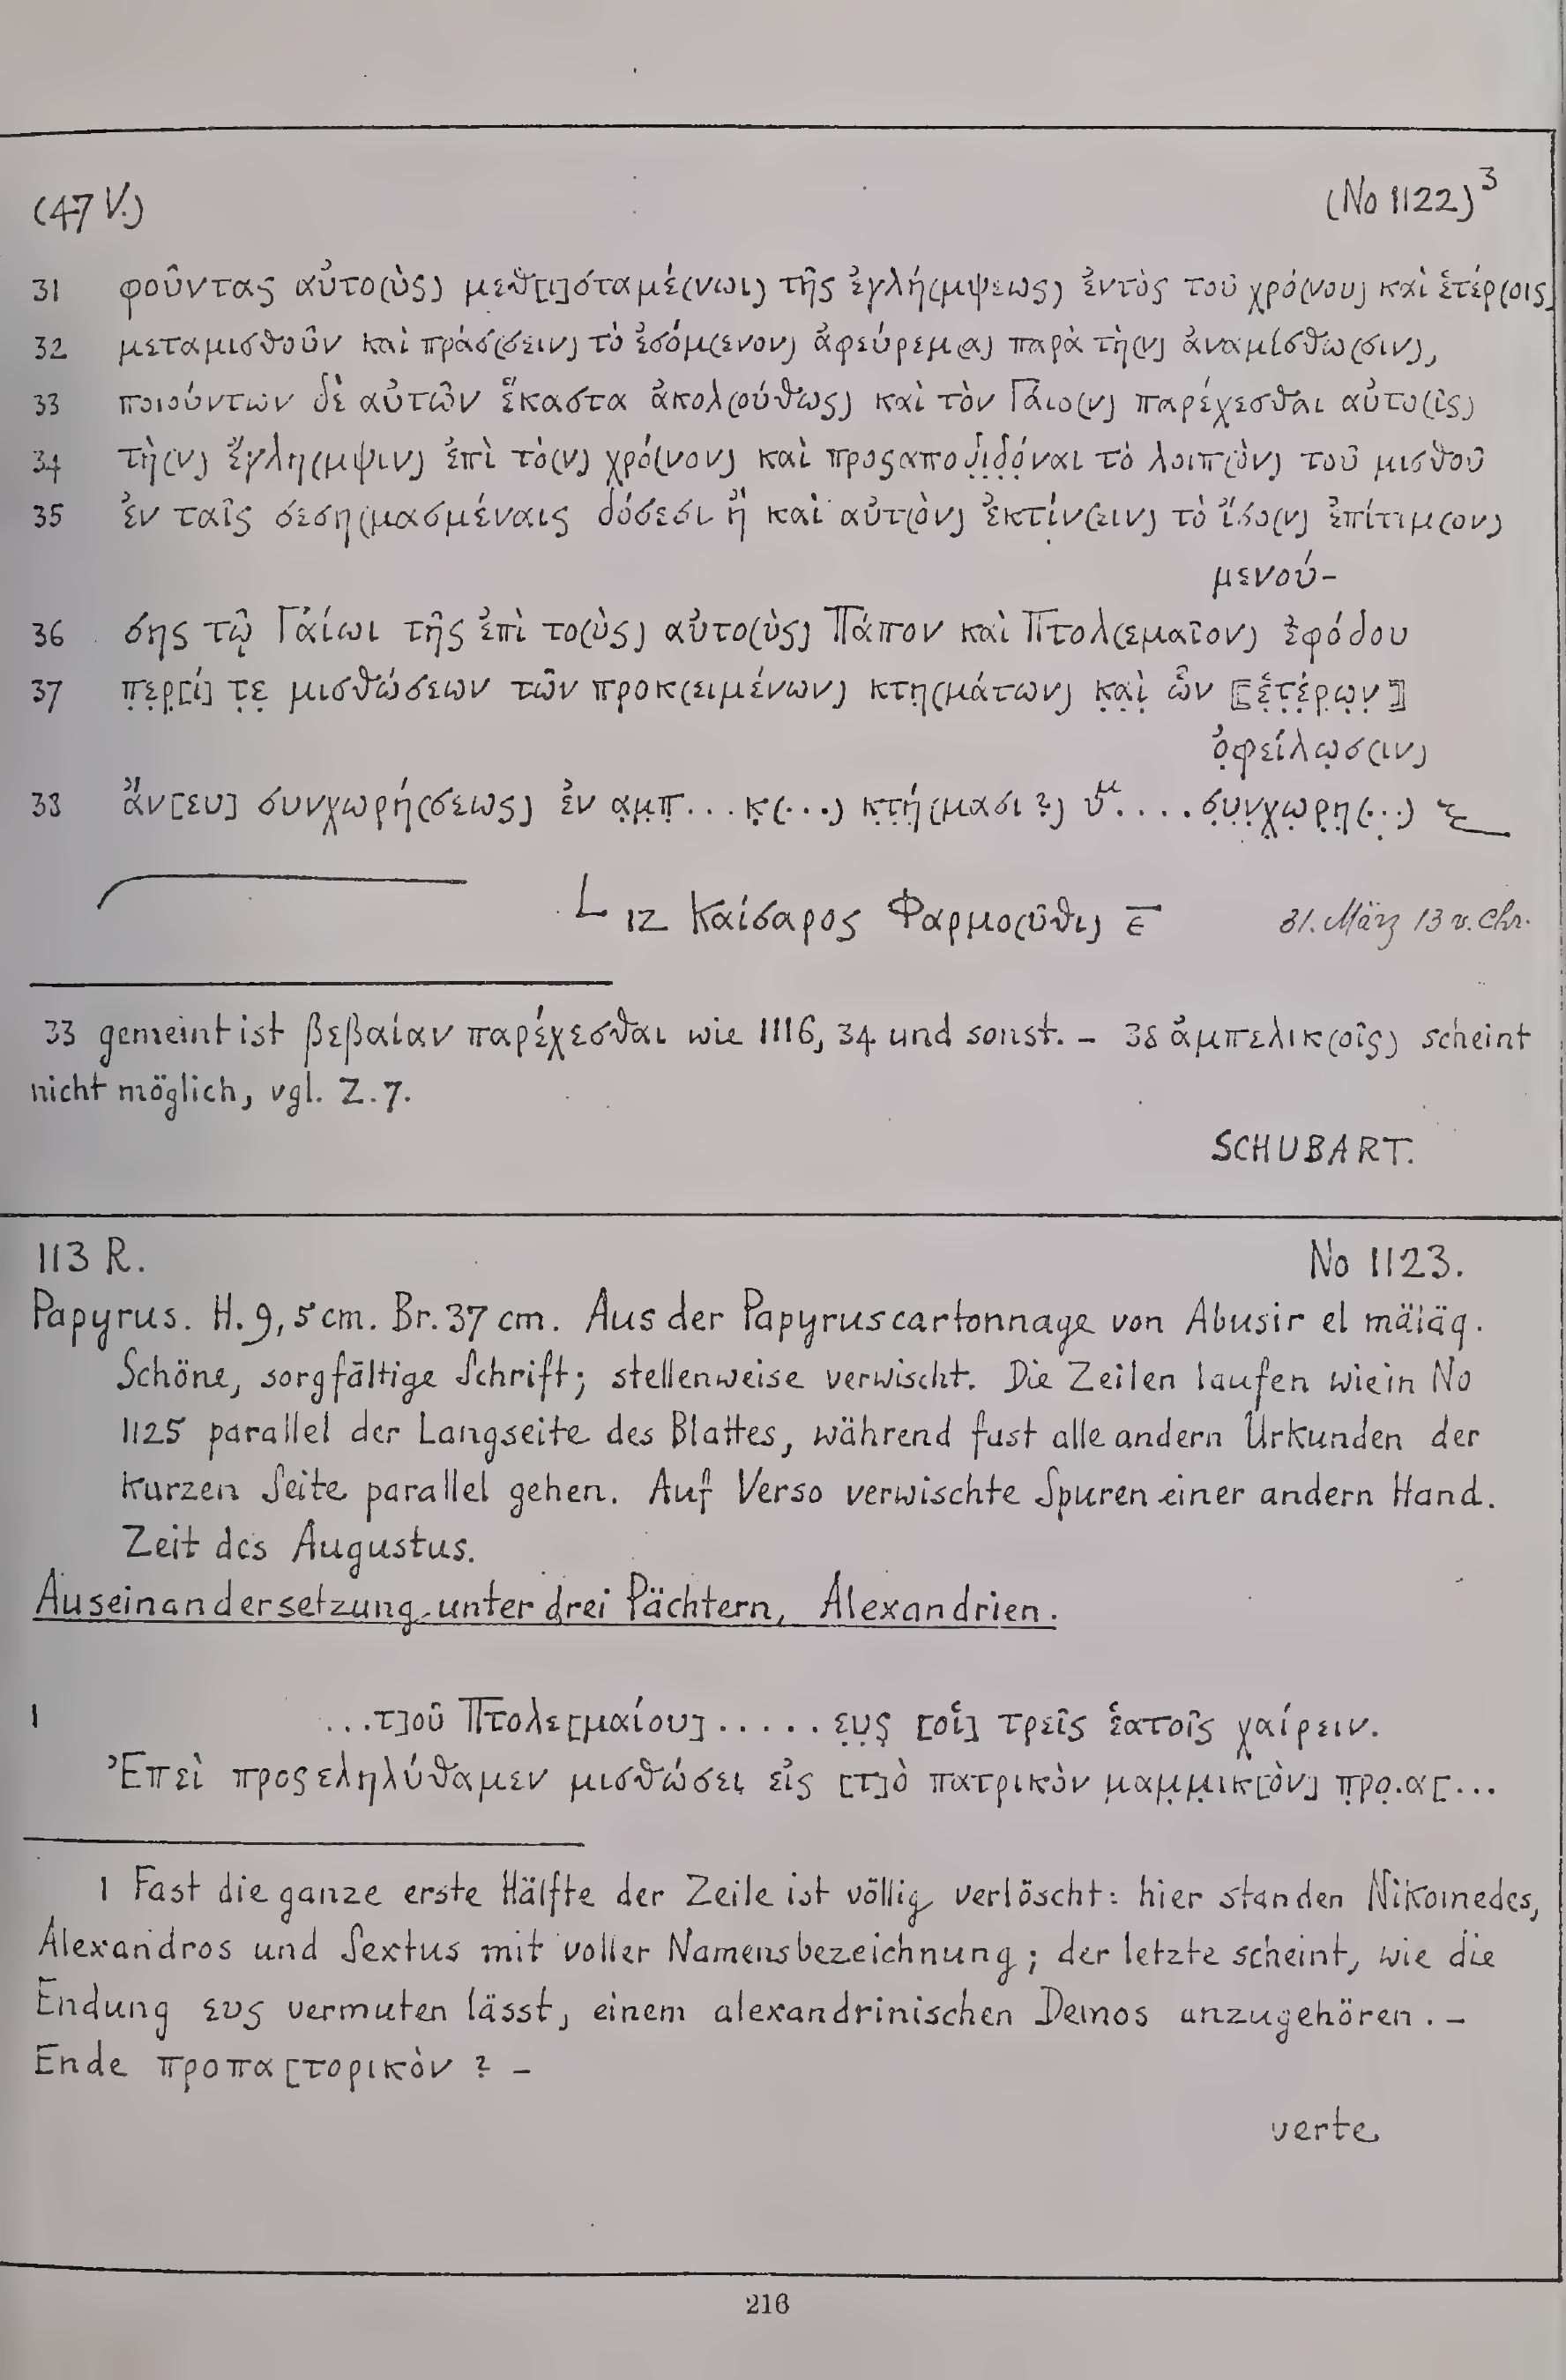 (47 V.) (No 1122)³
31 φοῦντας αὐτο(ὺς) μεθ[ι]σταμέ(νωι) τῆς ἐγλή(μψεως) ἐντὸς τοῦ χρό(νου) καὶ ἑτέρ(οις)
32 μεταμισθοῦν καὶ πράσ(σειν) τὸ ἐσόμ(ενον) ἀφεύρεμ(α) παρὰ τὴ(ν) ἀναμίσθω(σιν),
33 ποιούντων δὲ αὐτῶν ἕκαστα ἀκολ(ούθως) καὶ τὸν Γάιο(ν) παρέχεσθαι αὐτο(ῖς)
34 τὴ(ν) ἔγλη(μψιν) ἐπὶ τὸ(ν) χρό(νον) καὶ προςαποδ̣ι̣δ̣ό̣ναι τὸ λοιπ(ὸν) τοῦ μισθοῦ
35 ἐν ταῖς σεση(μασμέναις δόσεσι ἢ καὶ αὐτ(ὸν) ἐκτίν(ειν) τὸ ἴσο(ν) ἐπίτιμ(ον)
μενού-
36 σης τῷ Γαίωι τῆς ἐπὶ το(ὺς) αὐτο(ὺς) Πάπον καὶ Πτολ(εμαῖον) ἐφόδου
37 π̣ε̣ρ̣[ί] τ̣ε̣ μισθώσεων τῶν προκ(ειμένων) κτη(μάτων) κ̣α̣ὶ̣ ὧν ⟦ἑ̣τ̣έ̣ρ̣ω̣ν̣⟧
ὀ̣φείλω̣σ(ιν)
38 ἄν[ευ] συνχωρή(σεως) ἐν α̣μ̣π̣...κ̣(...) κ̣τ̣ή̣(μασι?) ὑ̅μ....σ̣υ̣ν̣χ̣ω̣ρ̣η̣(...)
L ιζ Καίσαρος Φαρμο(ῦθι) ε̅ 31. März 13 v. Chr.
33 gemeint ist βεβαίαν παρέχεσθαι wie 1116, 34 und sonst. – 38 ἀμπελικ(οῖς) scheint
nicht möglich, vgl. Z. 7.
SCHUBART.
113 R. No 1123.
Papyrus. H. 9,5 cm. Br. 37 cm. Aus der Papyruscartonnage von Abusir el mäläq.
Schöne, sorgfältige Schrift; stellenweise verwischt. Die Zeilen laufen wie in No
1125 parallel der Langseite des Blattes, während fast alle andern Urkunden der
kurzen Seite parallel gehen. Auf Verso verwischte Spuren einer andern Hand.
Zeit des Augustus.
Auseinandersetzung unter drei Pächtern, Alexandrien.
1 ...τ]οῦ Πτολε[μαίου].....ε̣υ̣ς̣ [οἱ] τρεῖς ἑατοῖς χαίρειν.
Ἐπεὶ προςεληλύθαμεν μισθώσει εἰς [τ]ὸ πατρικὸν μ̣αμ̣μ̣ικ[ὸν] π̣ρ̣ο̣.α[...
1 Fast die ganze erste Hälfte der Zeile ist völlig verlöscht: hier standen Nikomedes,
Alexandros und Sextus mit voller Namensbezeichnung; der letzte scheint, wie die
Endung ευς vermuten lässt, einem alexandrinischen Demos anzugehören. –
Ende προπα[τορικὸν? –
verte
216